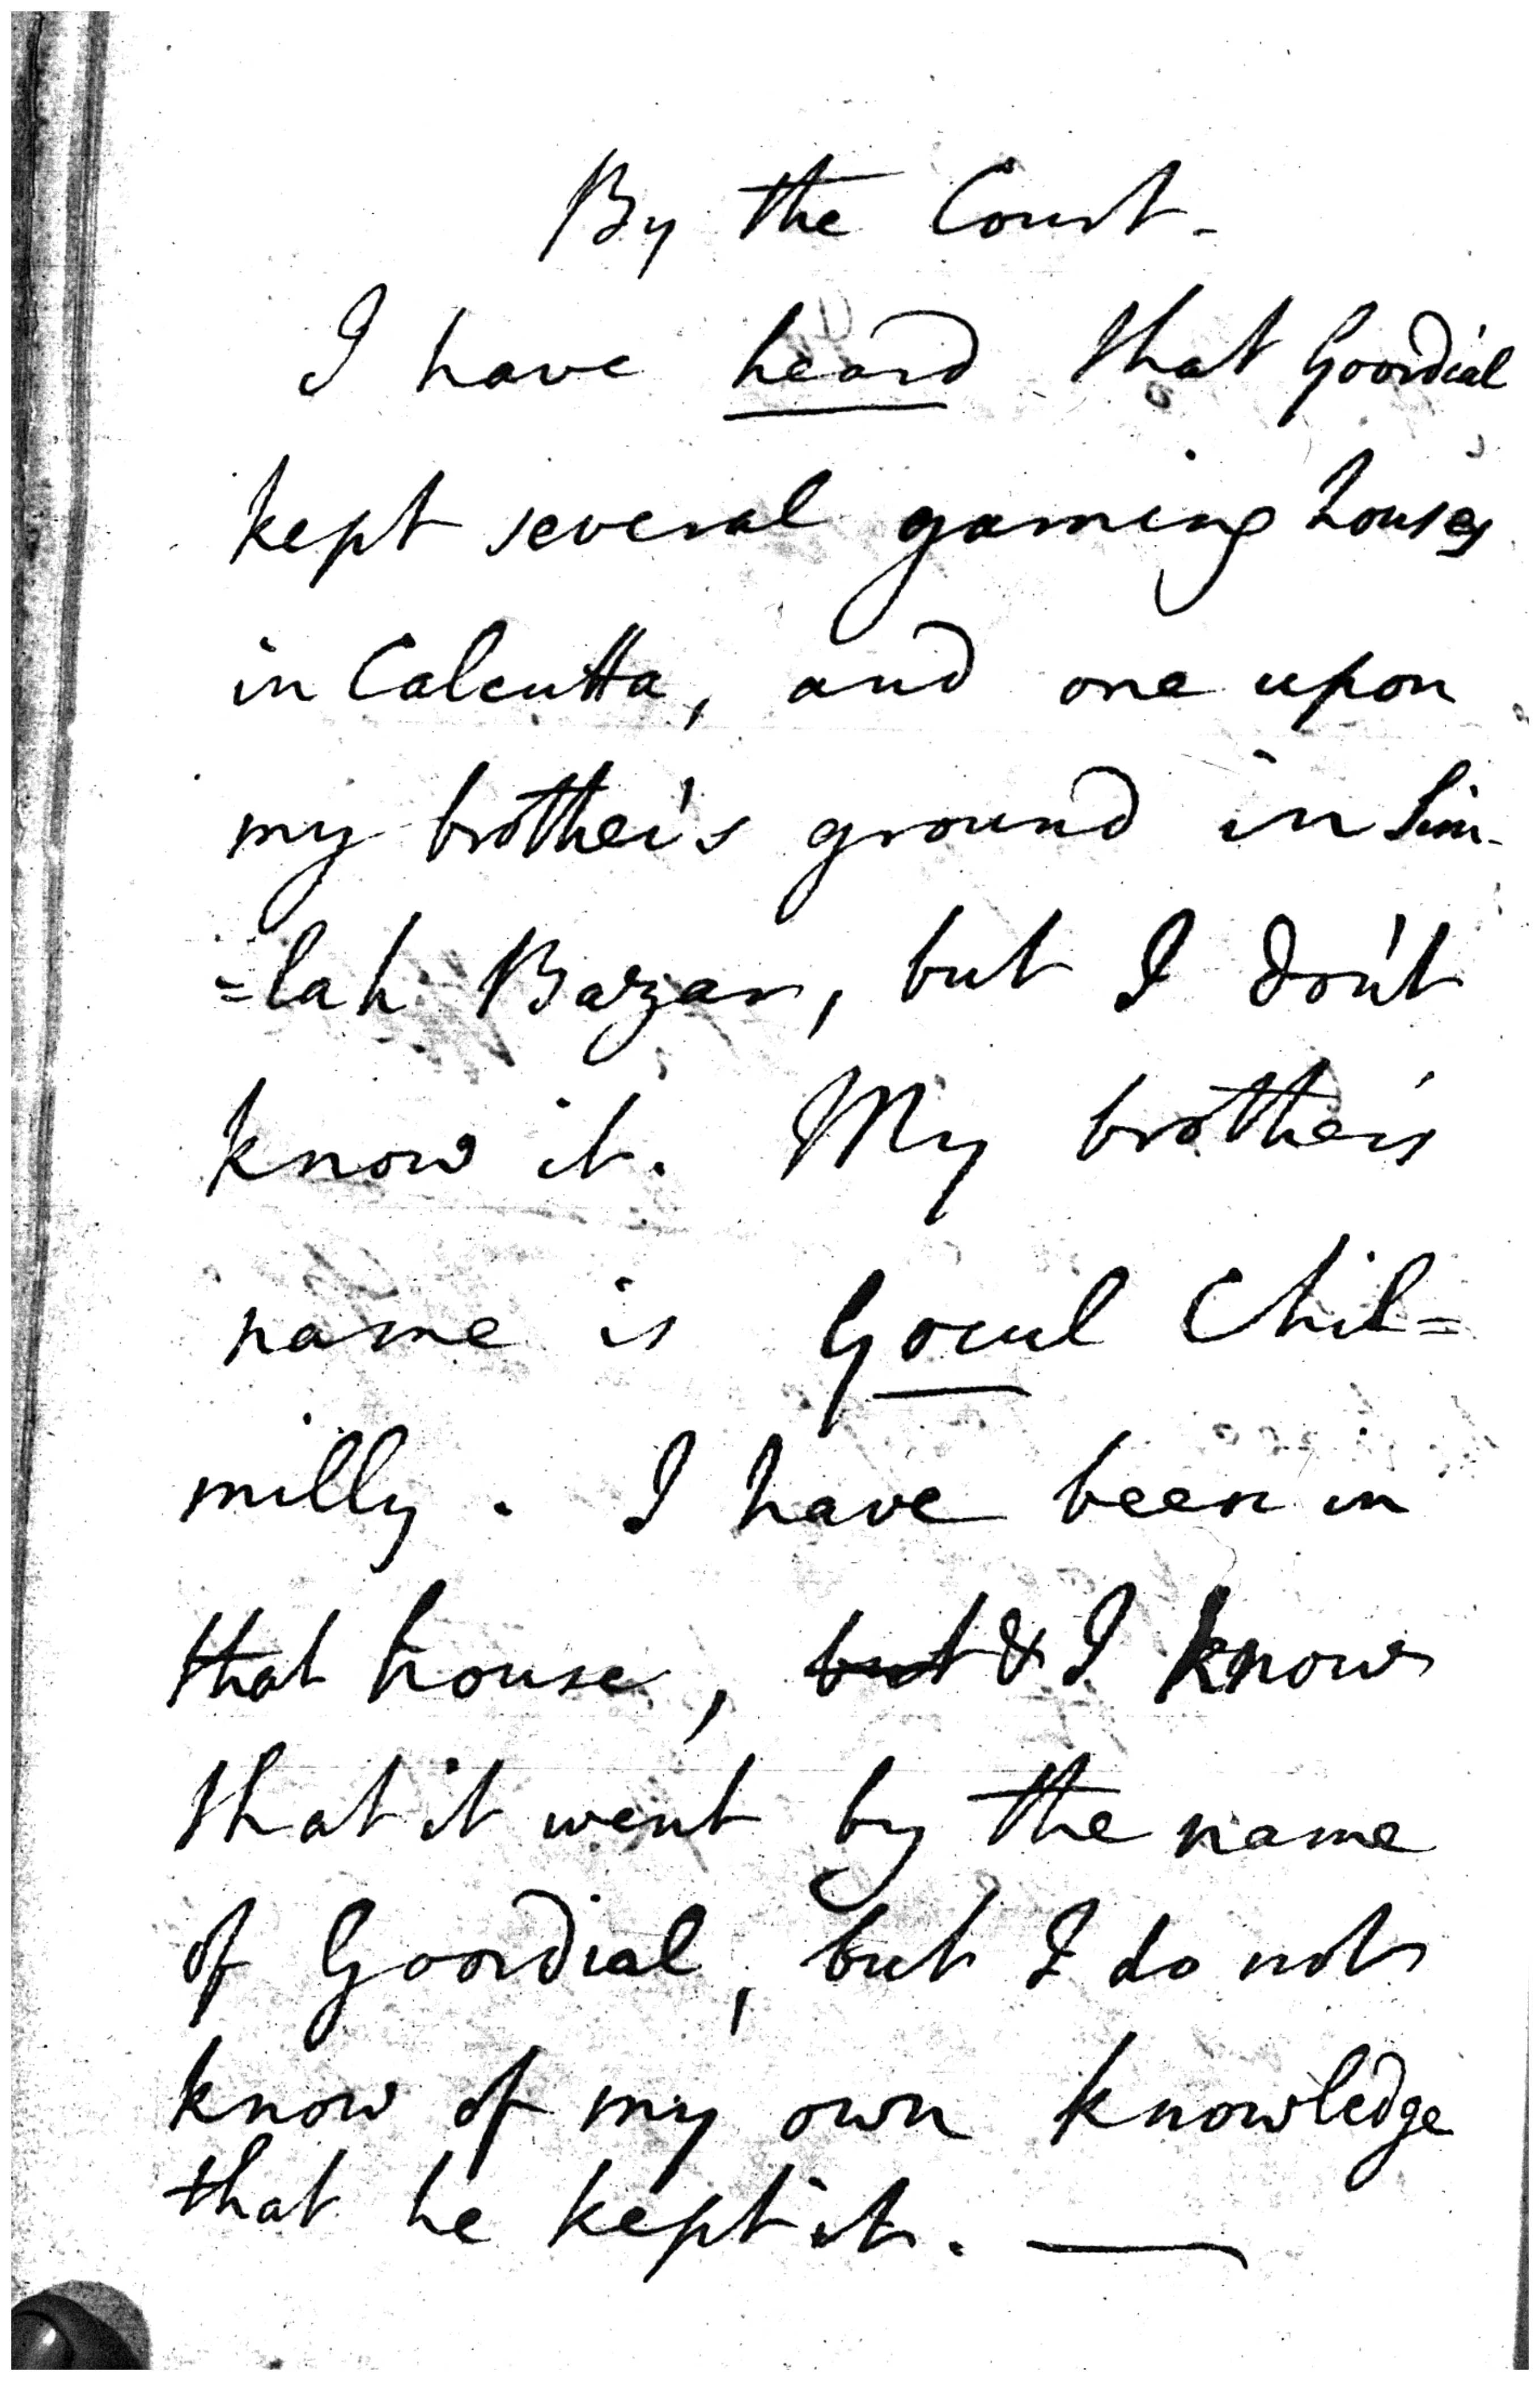 By the Court-
I have heard that Goordial
kept several gaming houses
in Calcutta, and one upon
my brother's ground in Sim-
=lah Bazar, but I don't
know it. My brother's
name is Gocul Chil=
milly. I have been in
that house, but & I know
that it went by the name
of Goordial, but I do not
know of my own knowledge
that he kept it. —